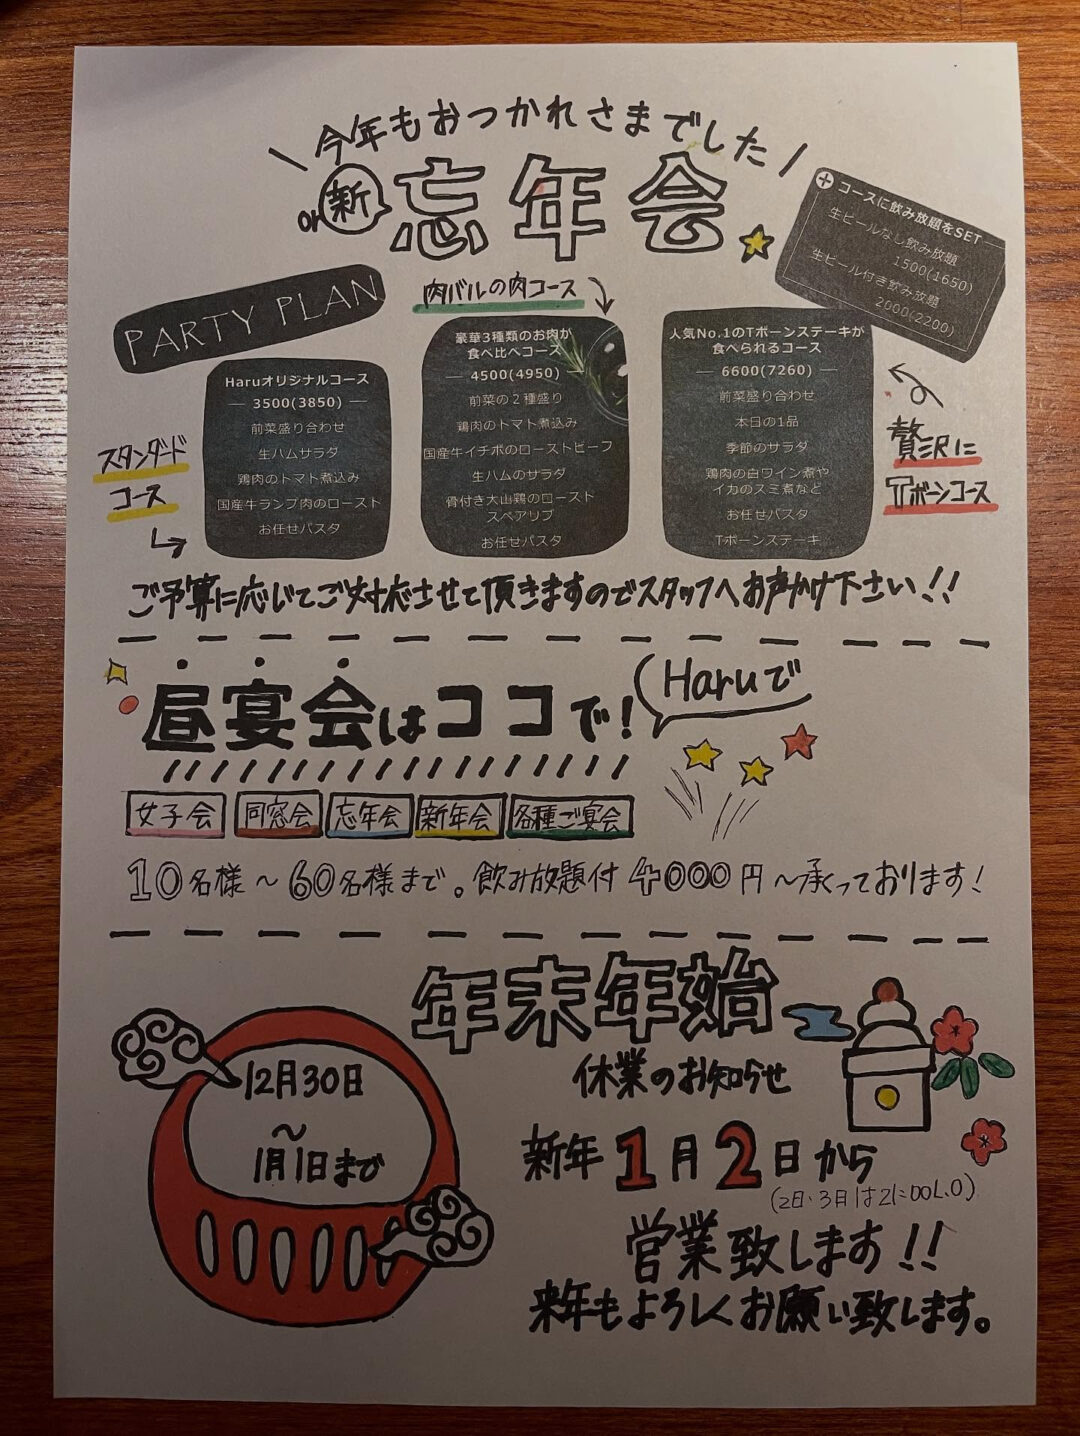 今年もおつかれさまでした
or 新 忘年会
PARTY PLAN
+ コースに飲み放題をSET
生ビールなし飲み放題
1500(1650)
生ビール付き飲み放題
2000(2200)
スタンダード
コース
Haruオリジナルコース
3500(3850)
前菜盛り合わせ
生ハムサラダ
鶏肉のトマト煮込み
国産牛ランプ肉のロースト
お任せパスタ
肉バルの肉コース
豪華3種類のお肉が
食べ比べコース
4500(4950)
前菜の2種盛り
鶏肉のトマト煮込み
国産牛イチボのローストビーフ
生ハムのサラダ
骨付き大山鶏のロースト
スペアリブ
お任せパスタ
人気No.1のTボーンステーキが
食べられるコース
6600(7260)
前菜盛り合わせ
本日の1品
季節のサラダ
鶏肉の白ワイン煮や
イカのスミ煮など
お任せパスタ
Tボーンステーキ
贅沢に
Tボーンコース
ご予算に応じてご対応させて頂きますのでスタッフへお声かけ下さい!!
昼宴会はココで!
Haruで
女子会 同窓会 忘年会 新年会 各種ご宴会
10名様〜60名様まで。飲み放題付4000円〜承っております!
年末年始
休業のお知らせ
12月30日
〜
1月1日まで
新年1月2日から
(2日・3日は21:00L.O)
営業致します!!
来年もよろしくお願い致します。